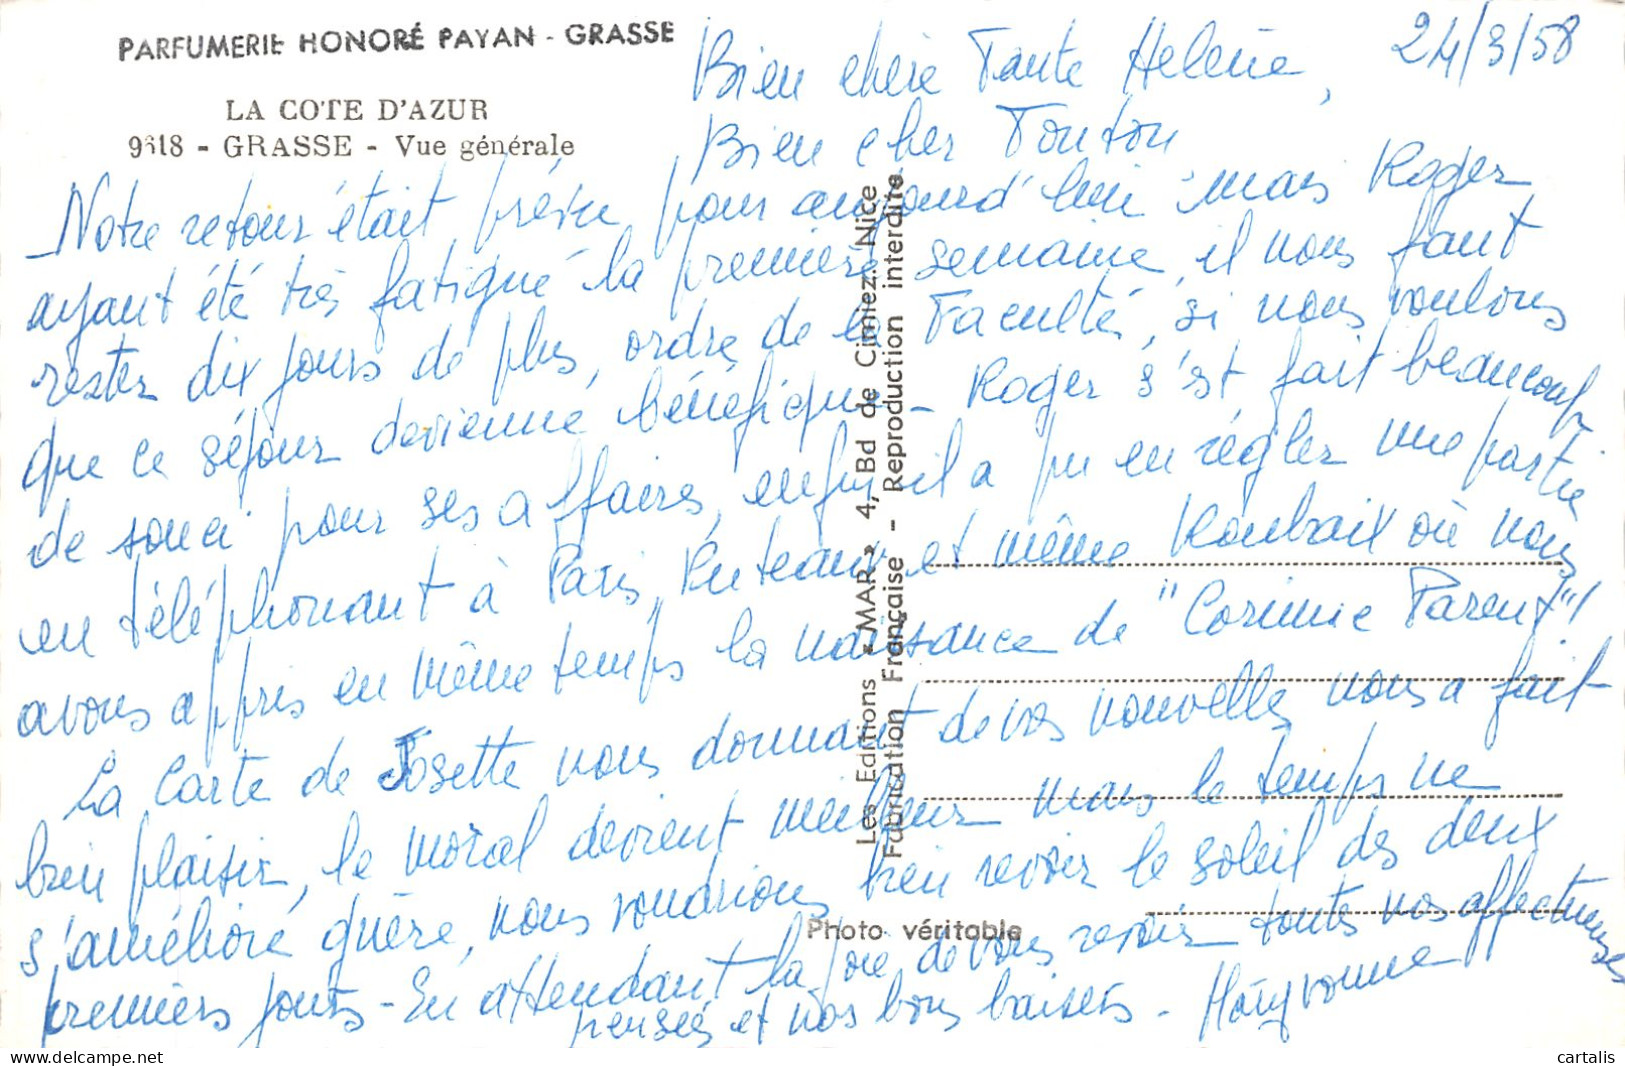 PARFUMERIE HONORÉ PAYAN - GRASSE
LA COTE D'AZUR
9618 - GRASSE - Vue générale
24/3/58
Bien chère Tante Hélène,
Bien cher Tonton
Notre retour était prévu pour aujourd'hui mais Roger
ayant été très fatigué la première semaine, il nous faut
rester dix jours de plus, ordre de la Faculté, si nous voulons
que ce séjour devienne bénéfique - Roger s'est fait beaucoup
de souci pour ses affaires, enfin il a pu en régler une partie
en téléphonant à Paris, Puteaux et même Roubaix où nous
avons appris en même temps la naissance de "Corinne Parent"!
La Carte de Josette nous donnant de vos nouvelles nous a fait
bien plaisir, le moral devient meilleur mais le temps ne
s'améliore guère, nous voudrions bien revoir le soleil des deux
premiers jours - En attendant la joie de vous revoir toutes nos affectueuses
pensées et nos bons baisers -
Les Editions «MAR» 4, Bd de Cimiez. Nice
Fabrication Française - Reproduction interdite
Photo véritable
cartalis